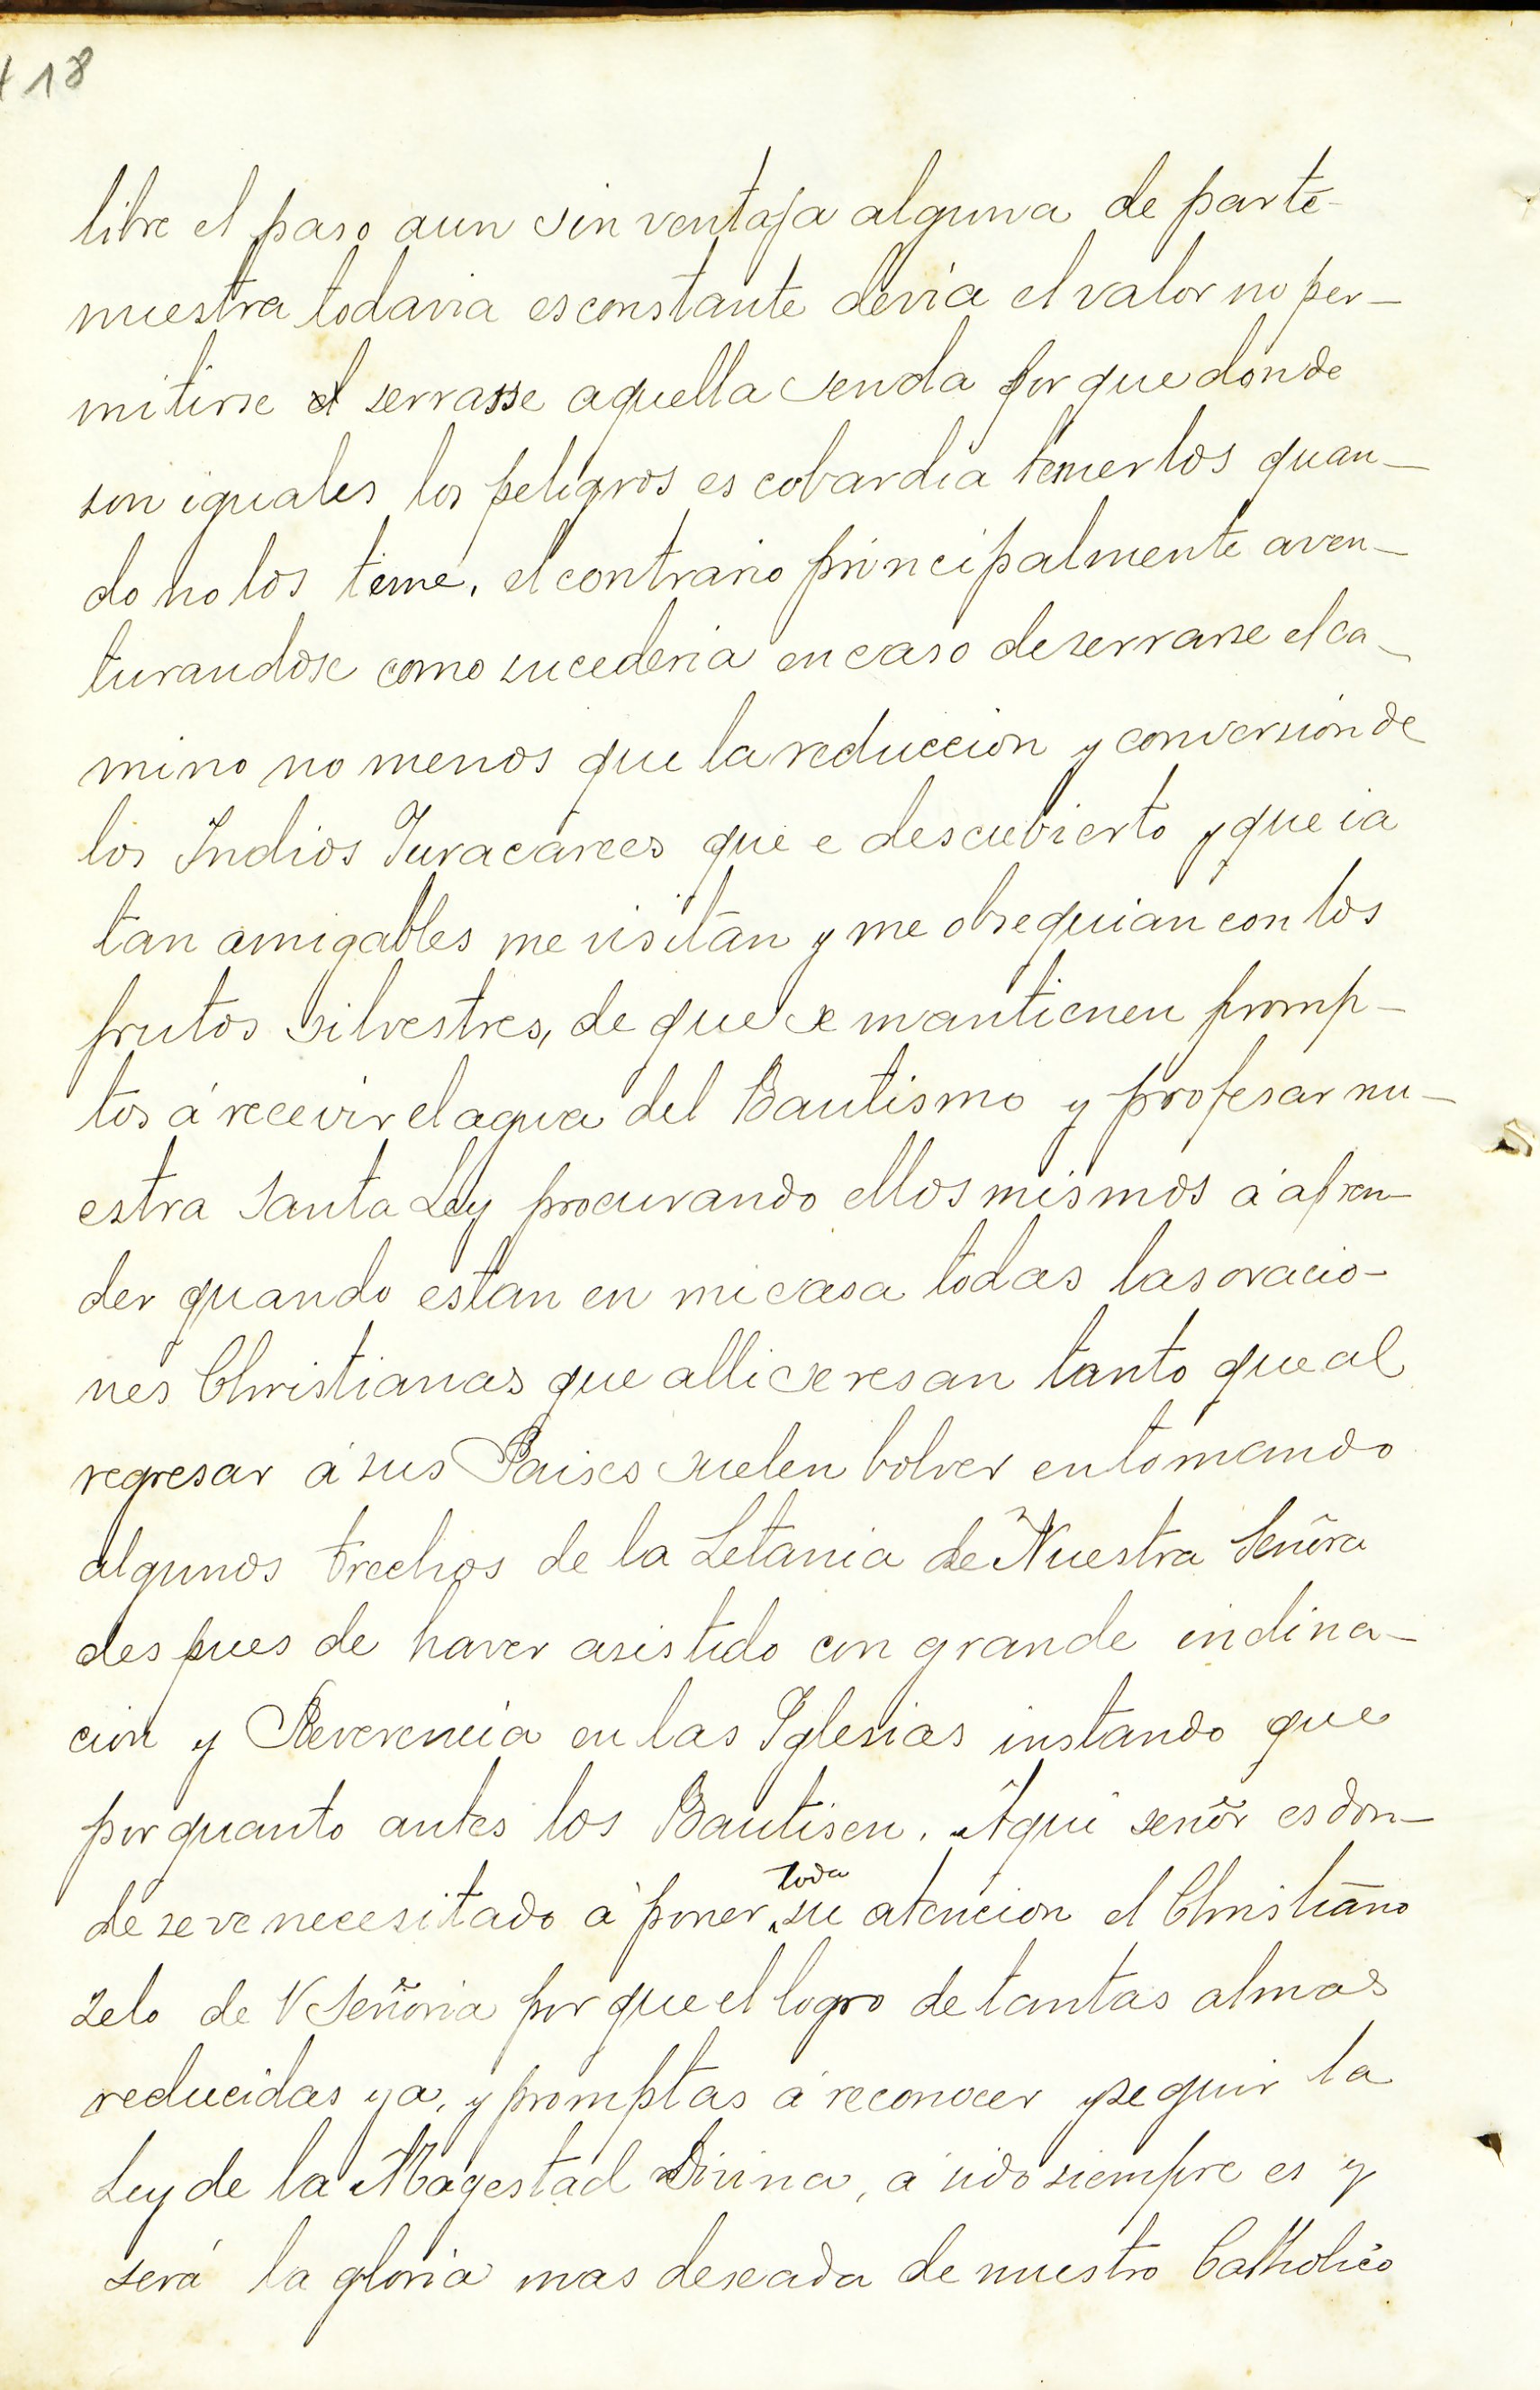 418
libre el paso aun sin ventaja alguna de parte
nuestra todavia es constante devia el valor no per-
mitirse el serrasse aquella senda por que donde
son iguales los peligros es cobardia temerlos quan-
do no los teme, el contrario principalmente aven-
turandose como sucederia en caso de serrarse el ca-
mino no menos que la reduccion y conversion de
los Indios Yuracarees que e descubierto y que ia
tan amigables me visitan y me obsequian con los
frutos silvestres, de que se mantienen promp-
tos á recevir el agua del Bautismo y profesar nu-
estra Santa Ley procurando ellos mismos á apren-
der quando estan en mi casa todas las oracio-
nes Christianas que alli se resan tanto que al
regresar á sus Paises suelen bolver entonando
algunos trechos de la Letania de Nuestra Señora
despues de haver asistido con grande indina-
cion y Reverencia en las Iglesias instando que
por quanto antes los Bautisen. Aqui señor es don-
de se ve necesitado á poner toda su atencion el Christiano
zelo de V Señoria por que el logro de tantas almas
reducidas ya, y promptas á reconocer y seguir la
Ley de la Magestad Divina, a sido siempre es y
será la gloria mas deseada de nuestro Catholico